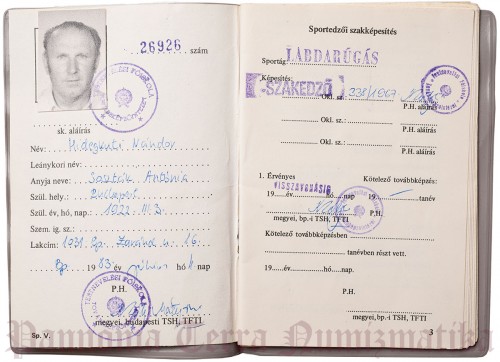 26926 szám
sk. aláírás
Név: Hidegkuti Nándor
Leánykori név:
Anyja neve:
Szül. hely.: Budapest
Szül. év, hó, nap.: 1922. III. 3.
Szem. ig. sz.:
Lakcím: 1031. Bp. 16.
Bp. 1983 év július hó nap
P.H.
megyei, budapesti TSH, TFTI
Sp. V.
Sportedzői szakképesítés
Sportág: LABDARÚGÁS
Képesítés:
SZAKEDZŐ
P.H.
Okl. sz.: 338/1967.
P.H. aláírás
Okl. sz.:
P.H. aláírás
Okl. sz.:
P.H. aláírás
1. Érvényes Kötelező továbbképzés:
VISSZAVONÁSIG
19 év hó nap 19 tanév
P.H.
megyei, bp.-i TSH, TFTI
Kötelező továbbképzésben
tanévben részt vett.
19 év hó nap
P.H.
megyei, bp.-i TSH, TFTI
3
Pannonia Terra Numizmatika